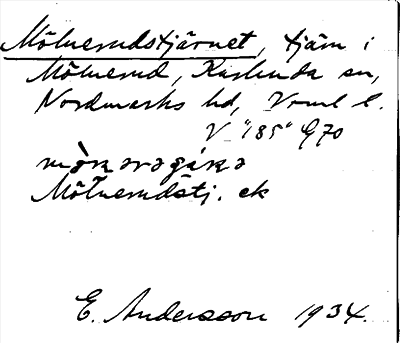 Mölnerudstjärnet, tjärn i
Mölnerud, Karlanda sn,
Nordmarks hd, Verml l.
V "185" G70
Mölnerudstj. ek
E. Andersson 1934.